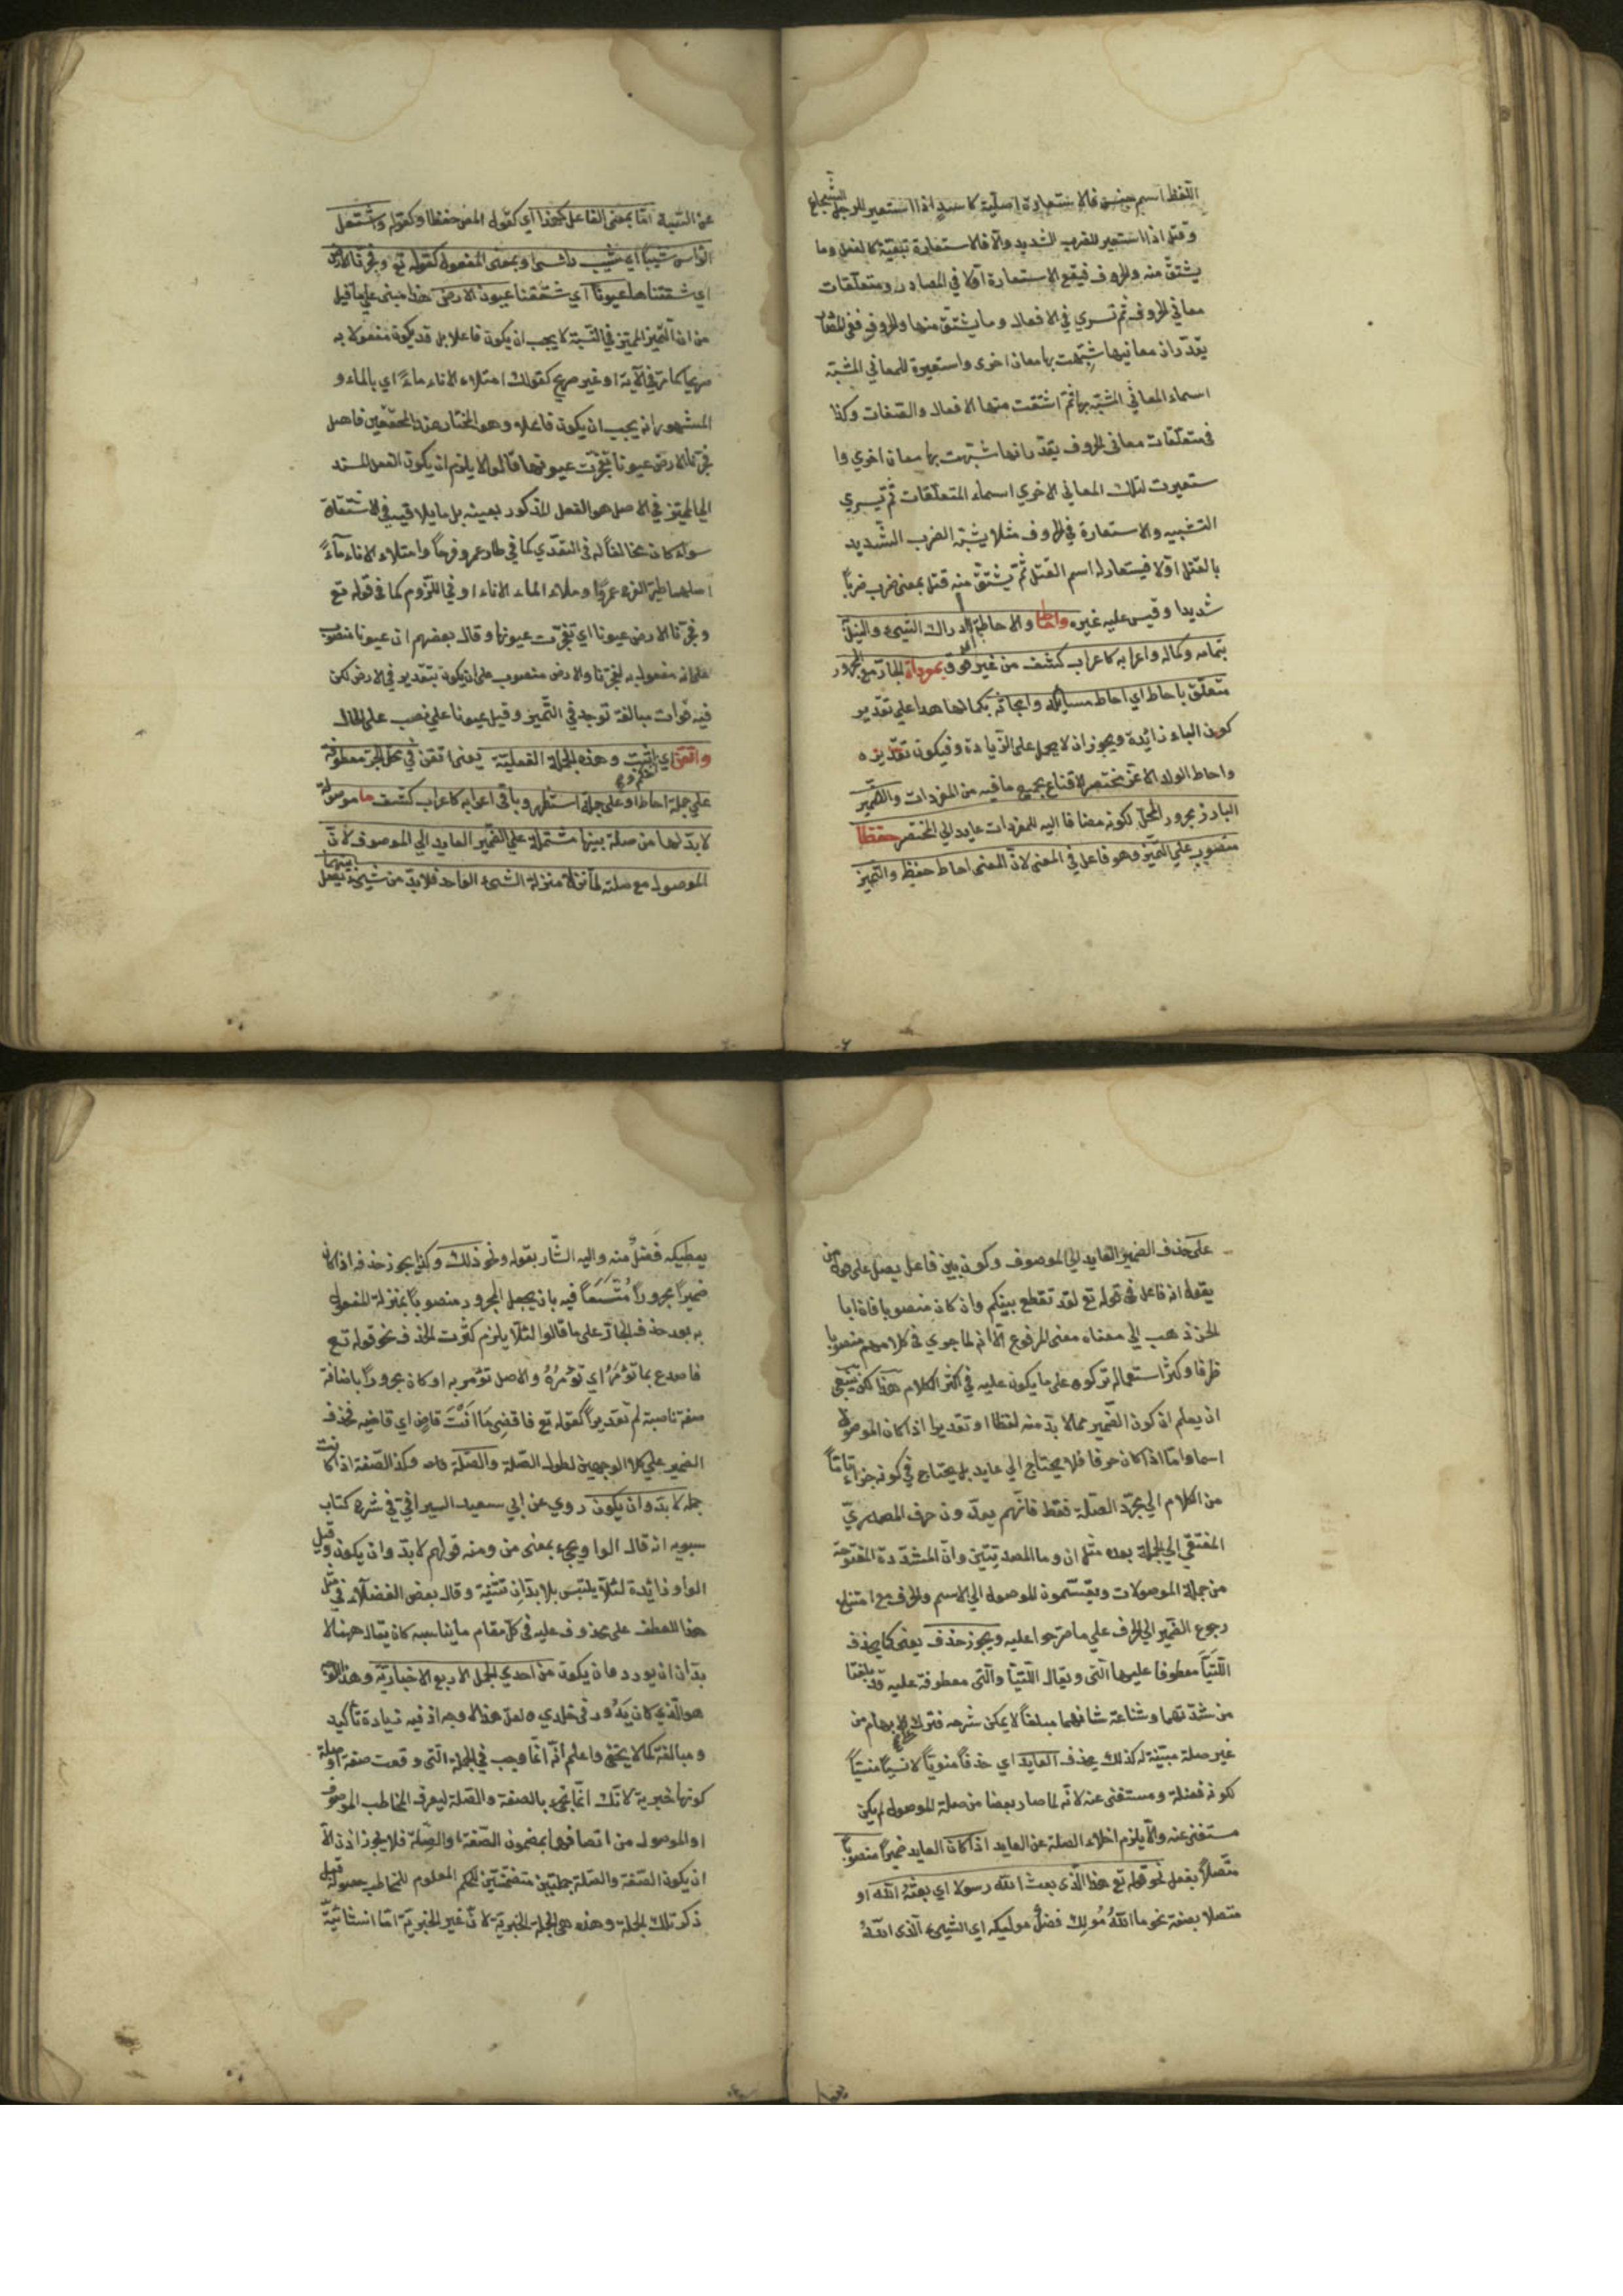 اللفظ اسم جنس فالاستعارة اصلية كاسد اذا استعير للرجل الشجاع
وقتل اذا استعير للضرب الشديد والا فالاستعارة تبعية كالفعل وما
يشتق منه والحروف فيقع الاستعارة اولا في المصادر ومتعلقات
معاني الحروف ثم تسري في الافعال وما يشتق منها والحروف ففي
يقدر ان معانيها شبهت بها معان اخرى واستعيرة للمعاني المشبه
اسماء المعاني المشبه بها ثم اشتقت منها الافعال والصفات وكذا
في متعلقات معاني الحروف يقدر انها شبهت بها معان اخري وا
ستعيرت لتلك المعاني الاخري اسماء المتعلقات ثم تسري
التشبيه والاستعارة في الحروف مثلا يشبه الضرب الشديد
بالقتل اولا فيستعار له اسم القتل ثم يشتق منه قتل بمعنى ضرب ضربا
شديدا وقيس عليه غيره واحاط والاحاطة ادراك الشيء والنيل
بتمامه وكماله واعرابه كاعراب كشف من غير فرق بمفرداته الجار مع المجرور
متعلق باحاط اي احاط مسايله وابحاثه بكمالها هذا علي تقدير
كون الباء زائدة ويجوز ان لا يحمل على الزيادة وفيكون تقديره
واحاط الولد الاعز مختصر الاقناع بجميع ما فيه من المفردات والضمير
البارز مجرور المحل لكونه مضافا اليه للمفردات عايد الي المختصر حفظا
منصوب علي التميز وهو فاعل في المعنى لان المعنى احاط حفيظ والتميز
عن النسبة اما بمعنى الفاعل كهذا اي كقوله المعز حفظا وكقوله واشتعل
الراس شيبا اي شيب راسي او بمعنى المفعول كقوله تع وفجرنا الارض
اي شققناها عيونا اي شققنا عيون الارض هذا مبنى علي ما قيل
من ان التميز المميز في النسبة لا يجب ان يكون فاعلا بل قد يكون مفعولا به
صريحا كما مر في الآية او غير صريح كقولك امتلاء الاناء ماء اي بالماء و
المشهور انه يجب ان يكون فاعلا وهو المختار عند المحققين فاصل
فجرنا الارض عيونا تفجرت عيونها قالوا لا يلزم ان يكون الفعل المسند
الي المميز في الاصل هو الفعل المذكور بعينه بل ما يلاقيه في الاشتقاق
سواء كان مخالفا له في التعدي كما في طار عمرو فرحا وامتلاء الاناء ماء
اصلهما طير الفرح عمروا وملاء الماء الاناء او في اللزوم كما في قوله تع
وفجرنا الارض عيونا اي تفجرت عيونها وقال بعضهم ان عيونا منصوب
على انه مفعول به لفجرنا والارض منصوب على ان يكون بتقدير في الارض لكن
فيه فوات مبالغة توجد في التميز وقيل عيونا علي نصب على الحال
واتقن اي اثبت وهذه الجملة الفعلية يعنى اتقن في محل الجر معطوفة
علي جملة احاط او على جملة استظهر وباقى اعرابه كاعراب كشف ما موصولة
لا بد لها من صلة بينها مشتملة علي الضمير العايد الي الموصوف لان
الموصول مع صلته لما نزلا منزلة الشيء الواحد فلا بد من شيء يصل
على حذف الضمير العايد الي الموصوف وكون بين فاعل يصل على
يقول انه فاعل في قوله تع لقد تقطع بينكم وان كان منصوبا فان ابا
الحسن ذهب الي معناه معنى المرفوع الا انه لما جري في كلامهم منصوبا
ظرفا وكثر استعماله تركوه على ما يكون عليه في اكثر الكلام هذا لكن ينبغي
ان يعلم ان كون الضمير مما لا بد منه لفظا او تقديرا اذا كان الموصول
اسما واما اذا كان حرفا فلا يحتاج الي عايد بل يحتاج في كونه جزاء تاما
من الكلام الي مجرد الصلة فقط فانهم يعدون حرف المصدري
المفتقي الي الجملة بعده مثل ان وما المصدريتين وان المشددة المفتوحة
من جملة الموصولات ويقسمون للموصول الي الاسم والحرف مع امتناع
رجوع الضمير الي الحرف علي ما صرحوا عليه ويجوز حذف يعنى كما يحذف
اللتيا معطوفا عليها التى ويقال اللتيا والتى معطوفة عليه قد بلغتا
من شدتهما وشناعة شانهما مبلغا لا يمكن شرحه فترك علي ابهام من
غير صلة مبينة له كذلك يحذف العايد اي حذفا منويا لا نسيا منسيا
لكونه فضلة ومستغنى عنه لانه لما صار بعضا من صلة الموصول لم يكن
مستغنى عنه والا يلزم اخلاء الصلة عن العايد اذا كان العايد ضميرا منصوبا
متصلا بفعل نحو قوله تع هذا الذي بعث الله رسولا اي بعثه الله او
متصلا بصفة نحو ما الله مولك فضل موليكه اي الشيء الذي الله
يعطيكه فضل منه واليه اشار بقوله ونحو ذلك وكذا يجوز حذفه اذا كان
ضميرا مجرورا متسعا فيه بان يجعل المجرور منصوبا بمنزلة المفعول
به بعد حذف الجار على ما قالوا لئلا يلزم كثرت الحذف نحو قوله تع
فاصدع بما تؤمر اي تؤمره والاصل تؤمر به او كان مجرورا باضافة
صفة ناصبة له تقديرا كقوله تع فاقض ما انت قاض اي قاضيه فحذف
الضمير علي كلا الوجهين لطول الصلة والصلة وكذا الصفة اذا كانت
جملة لا بد وان يكون روي عن ابي سعيد السيرافي في شرح كتاب
سبويه انه قال الواو يجيء بمعنى من ومنه قولهم لا بد وان يكون وقيل
الواو زائدة لئلا يلتبس بلا بدان تثنية وقال بعض الفضلاء في مثل
هذا العطف على محذوف عليه في كل مقام ما يناسبه كان يقال ههنا لا
بد ان يورد وان يكون من احدي الجمل الاربع الاخبارية وهذا
هو الذي كان يدور في خلدي ولعل هذا الاوجه اذ فيه زيادة تأكيد
ومبالغة كما لا يخفى واعلم انه انما وجب في الجملة التى وقعت صفة او صلة
كونها خبرية لانك انما تجيء بالصفة والصلة ليعرف المخاطب الموصوف
او الموصول من اتصافهما بمضمون الصفة والصلة فلا يجوز اذن الا
ان يكون الصفة والصلة جملتين متضمنتين للحكم المعلوم للمخاطب حصوله قبل
ذكر تلك الجملة وهذه هى الجملة الخبرية لان غير الخبرية اما انشائية